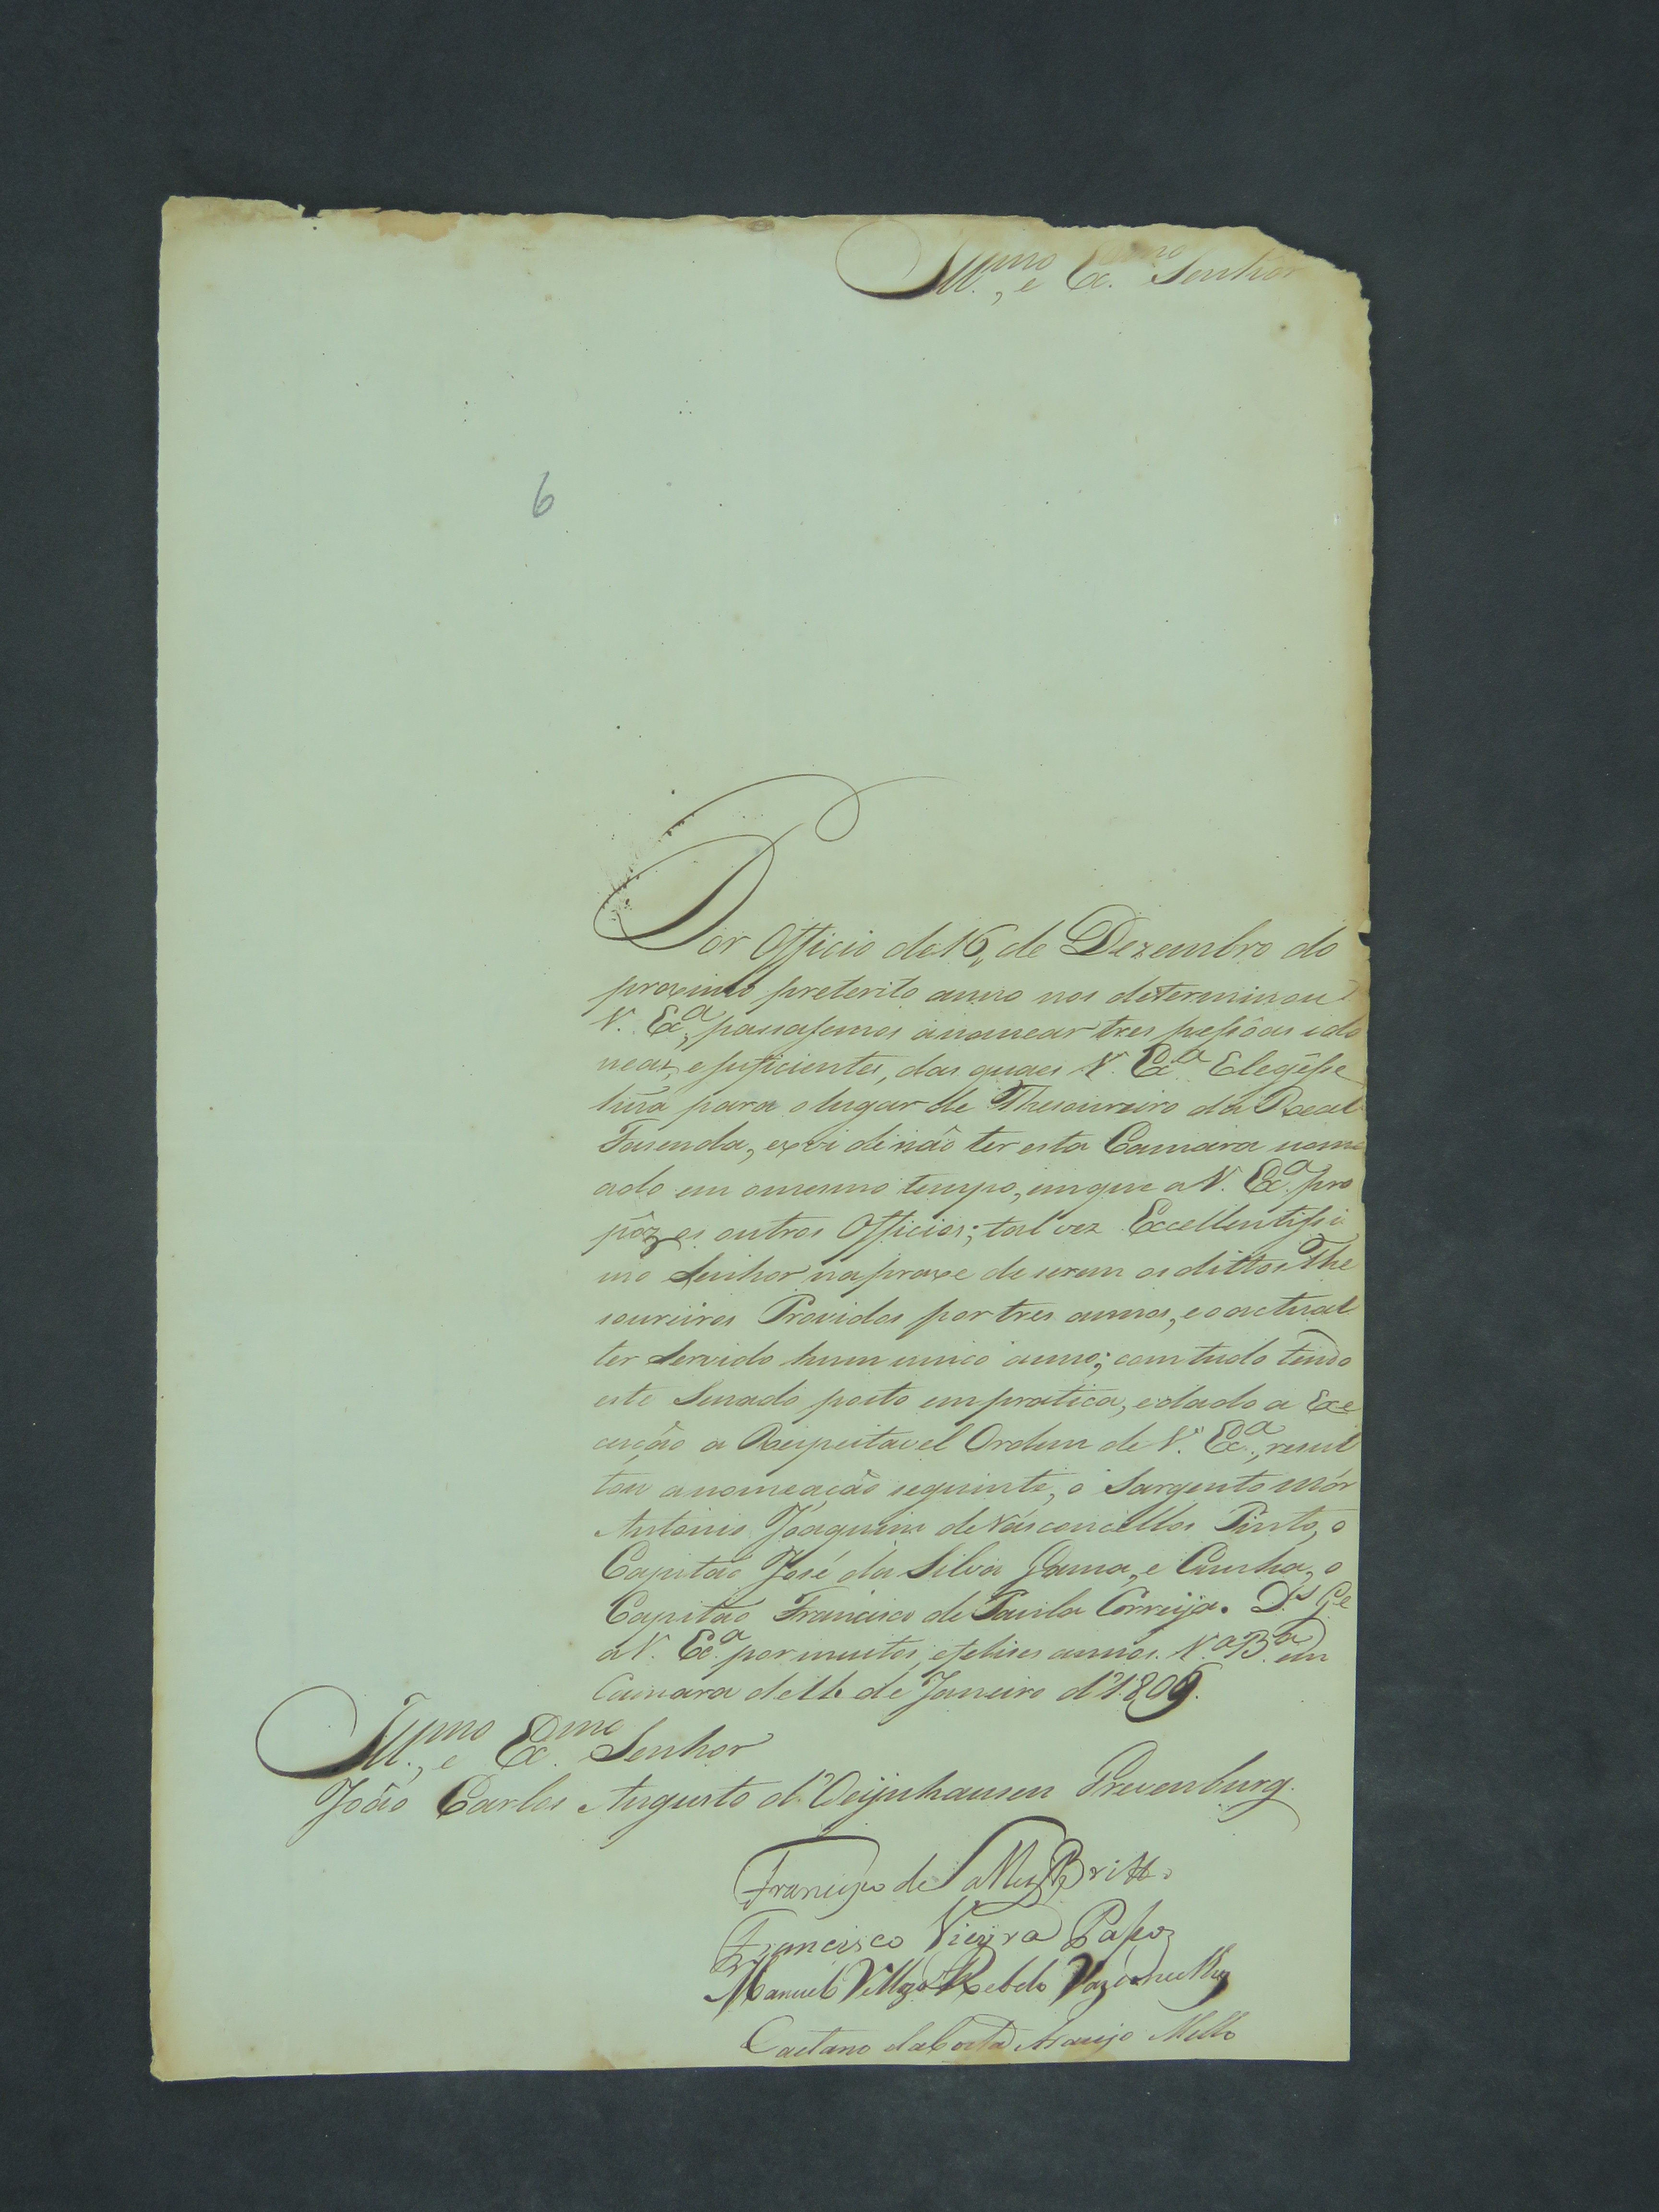 Ill.mo, e Ex.mo Senhor
6
Por Officio de 16, de Dezembro do
proximo preterito anno nos determinou
V. Ex.a, passasemos anomear tres pessôas ido
neas, e suficientes, das quaes V. Ex.a Elegêsse
huã para o lugar de Thesoureiro da Real
Fasenda, ex vi de não ter esta Camara nome
ado em omesmo tempo, emque a V. Ex.a pro
pôz os outros Officios; tal vez Excellentissi
mo Senhor na praxe de serem os dittos The
soureiros Providos por tres annos, e o actual
ter Servido hum unico anno; com tudo tendo
este Senado posto em pratica, e dado a Exe
cução a Respeitavel Ordem de V. Ex.a, resul
tou a nomeação seguinte, o Sargento mór
Antonio Joaquim de Vasconcellos Pinto, o
Capitão José da Silva Gama, e Cunha, o
Capitão Francisco de Paula Correija. D.s G.e
a V. Ex.a por muitos, e felises annos. V.a B.a em
Camara de 11. de Janeiro d'1.809.
Ill.mo, e Ex.mo Senhor
João Carlos Augusto d'Oeijnhausen Grevenburg.
Francisco de Salles Britto
Francisco Vieyra Passoz
Manuel Vellozo Rebelo
Caetano da Costa Araujo Mello